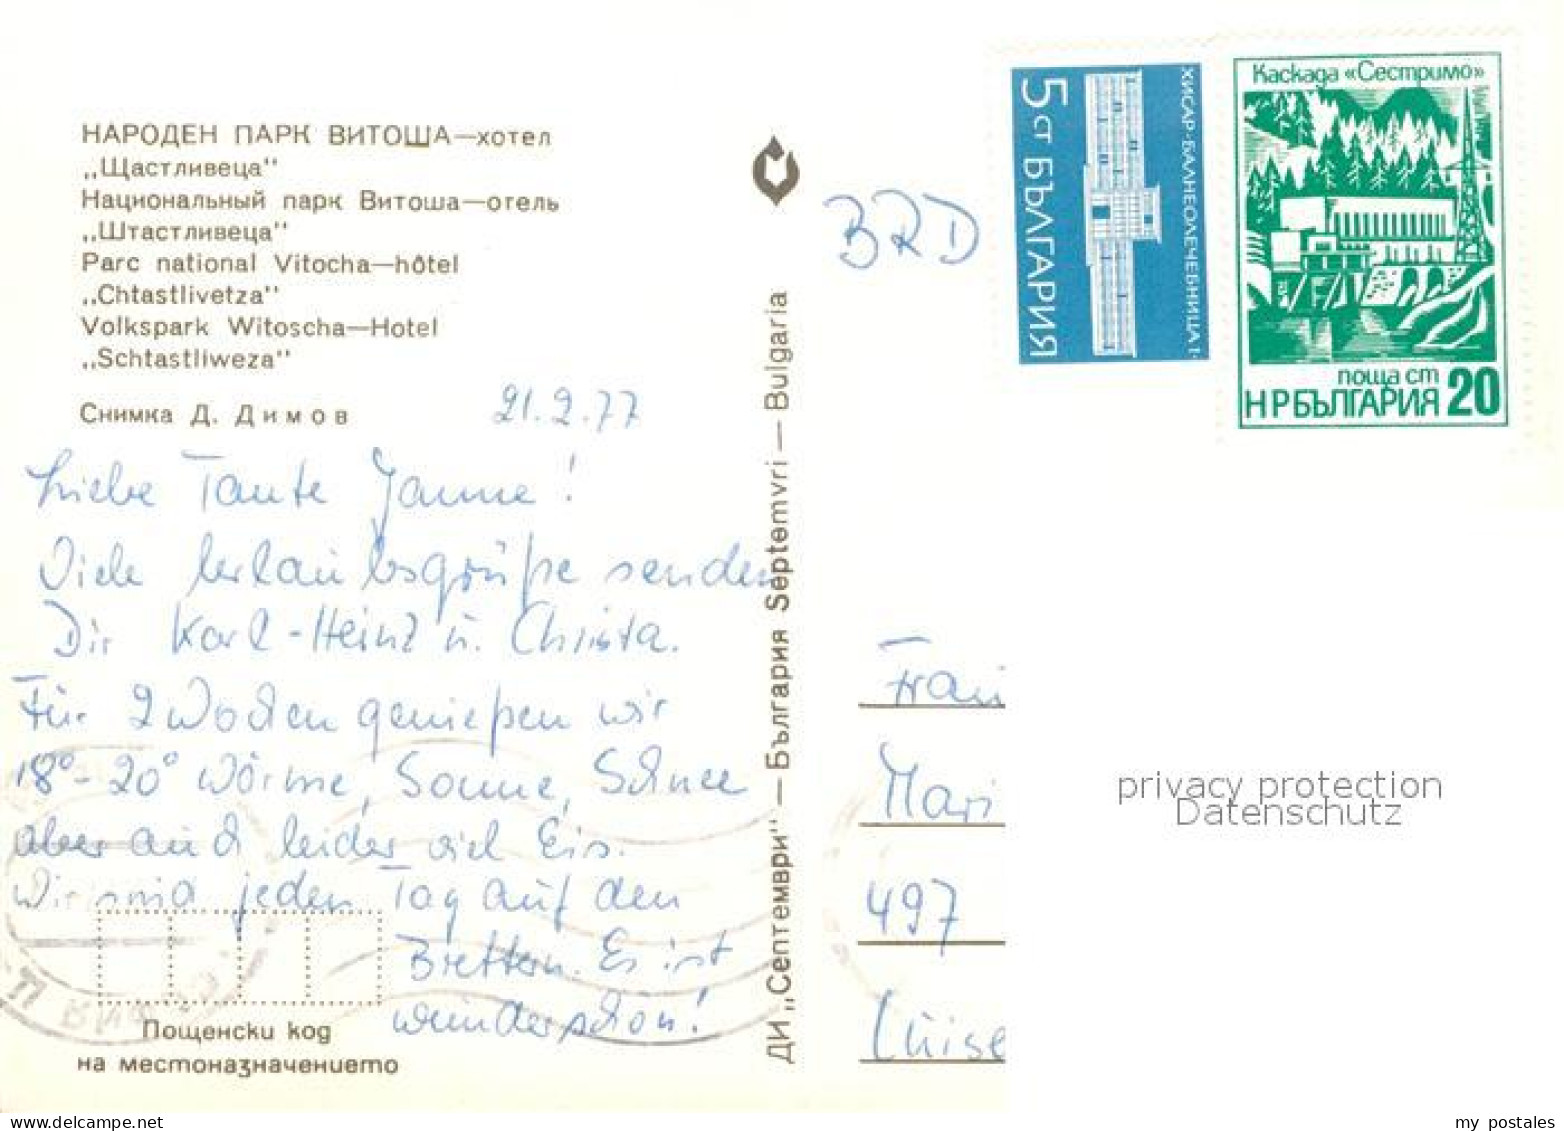 НАРОДЕН ПАРК ВИТОША—хотел
„Щастливеца"
Национальный парк Витоша—отель
„Штастливеца"
Parc national Vitocha—hôtel
„Chtastlivetza"
Volkspark Witoscha—Hotel
„Schtastliweza"
Снимка Д. Димов
21.2.77
Liebe Tante Janne!
Viele Urlaubsgrüße senden
Dir Karl-Heinz u. Christa.
Für 2 Wochen genießen wir
18°-20° Wärme, Sonne, Schnee
aber auch leider viel Eis.
Wir sind jeden Tag auf den
Brettern. Es ist
wunderschön!
Пощенски код
на местоназначението
ДИ „Септември" — България Septemvri — Bulgaria
BRD
5 СТ БЪЛГАРИЯ
ХИСАР·БАЛНЕОЛЕЧЕБНИЦА I·
Каскада «Сестримо»
поща ст
НРБЪЛГАРИЯ 20
Frau
Mari
497
privacy protection
Datenschutz
my postales
delcampe.net